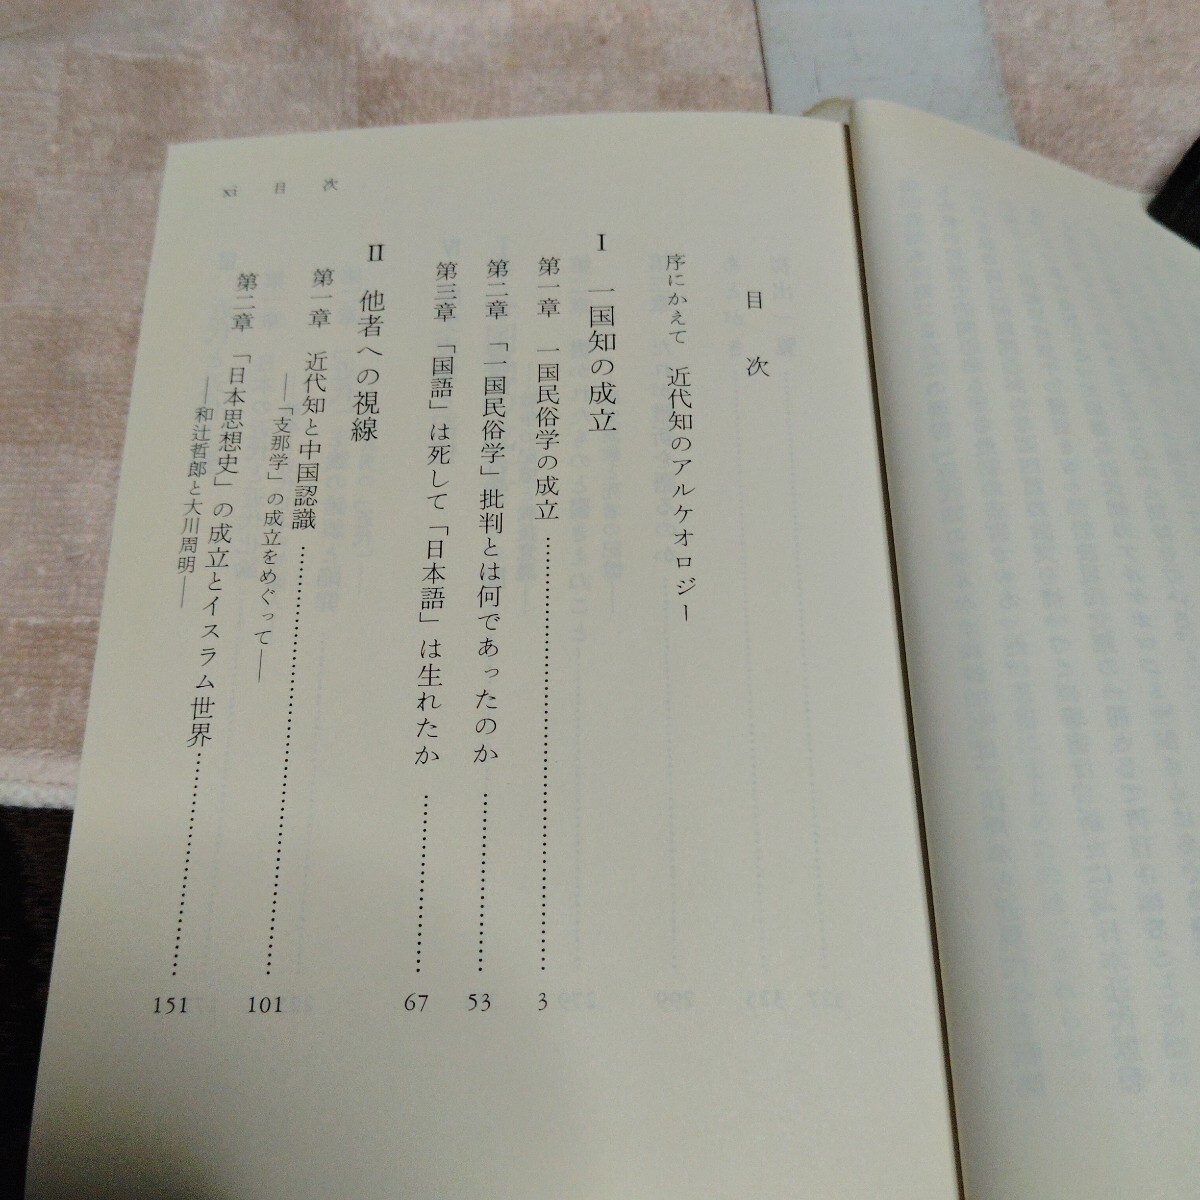 目次
序にかえて 近代知のアルケオロジー
Ⅰ 一国知の成立
第一章 一国民俗学の成立 …… 3
第二章 「一国民俗学」批判とは何であったのか …… 53
第三章 「国語」は死して「日本語」は生れたか …… 67
Ⅱ 他者への視線
第一章 近代知と中国認識 …… 101
――「支那学」の成立をめぐって――
第二章 「日本思想史」の成立とイスラム世界 …… 151
――和辻哲郎と大川周明――
目次 ix